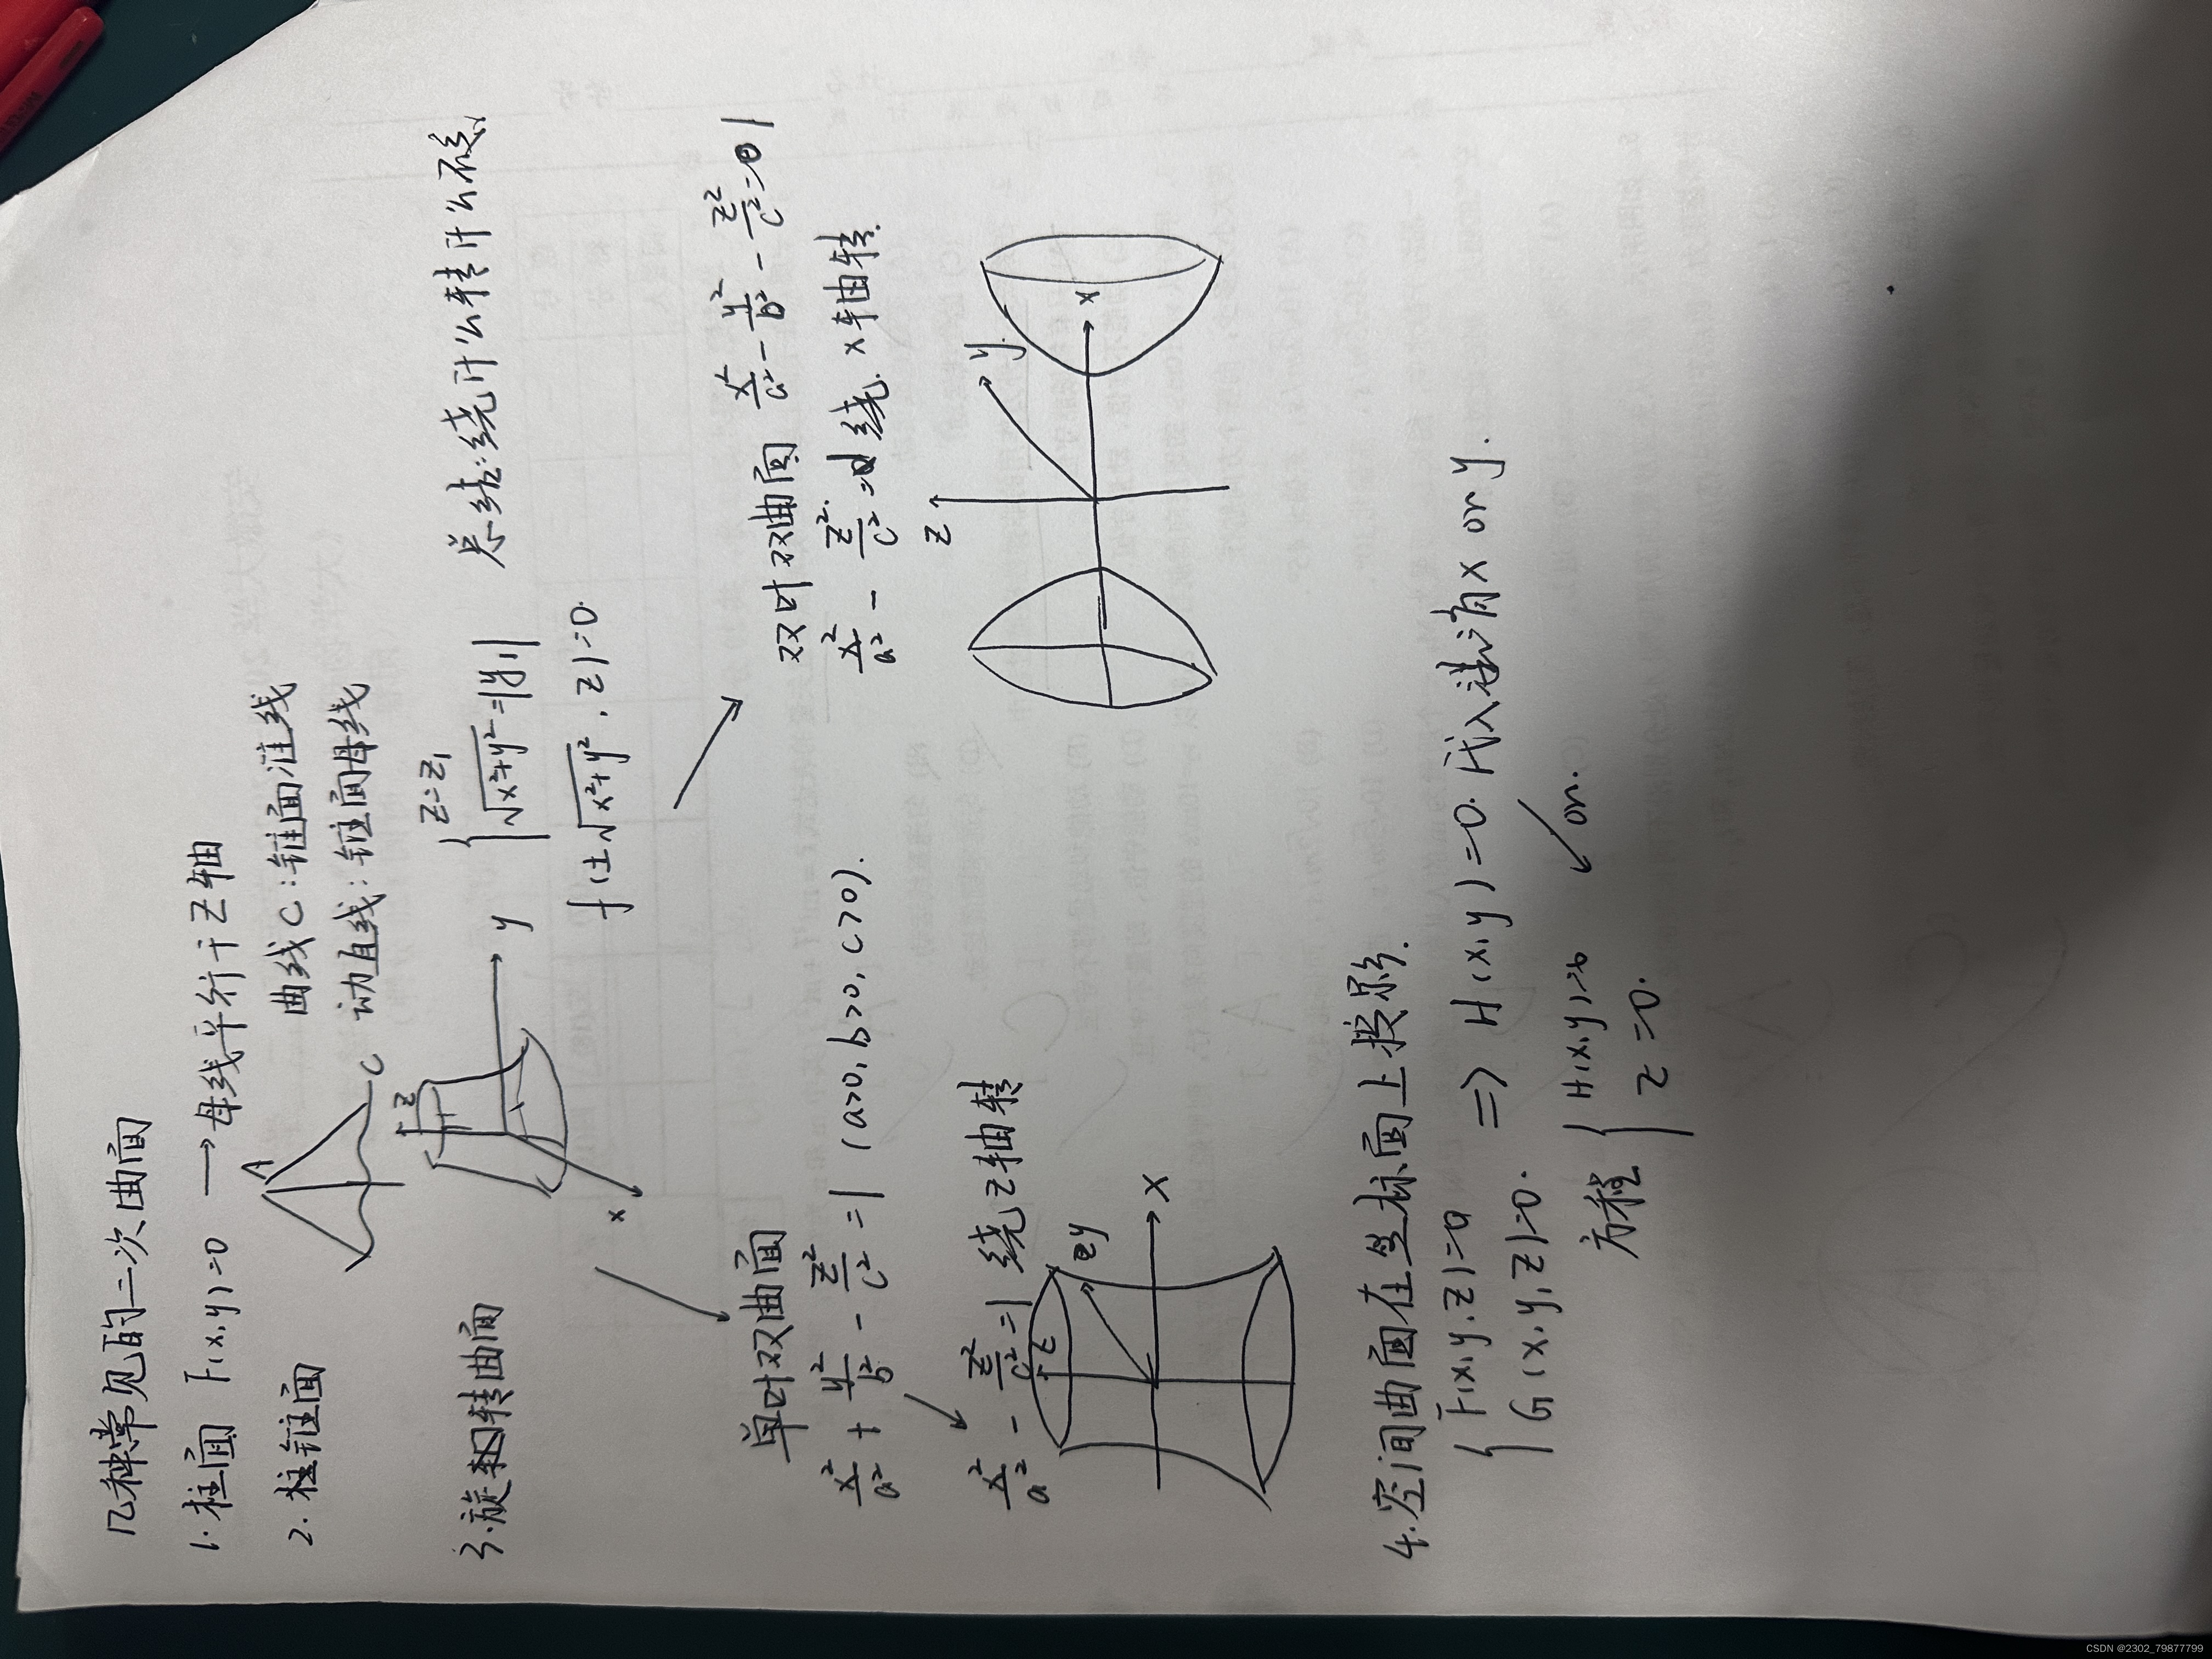 几种常见的二次曲面
1.柱面 F(x,y)=0 → 母线平行于Z轴
2.柱锥面
A
C
曲线C:锥面准线
动直线:锥面母线
3.旋转曲面
z
y
x
{ z=z₁
√x²+y² =|y₁|
f(±√x²+y², z)=0.
总结:绕什么转什么不变
单叶双曲面
x²/a² + y²/b² - z²/c² =1 (a>0, b>0, c>0).
x²/a² - z²/c² =1 绕z轴转
z
y
x
双叶双曲面 x²/a² - y²/b² - z²/c² = 1
x²/a² - z²/c² =1 绕 x轴转.
z
y.
x
4.空间曲面在坐标面上投影.
{ F(x,y,z)=0
G(x,y,z)=0. => H(x,y)=0. 代入进消x or y.
方程 { H(x,y)=0
z=0.
or.
CSDN @2302_79877799